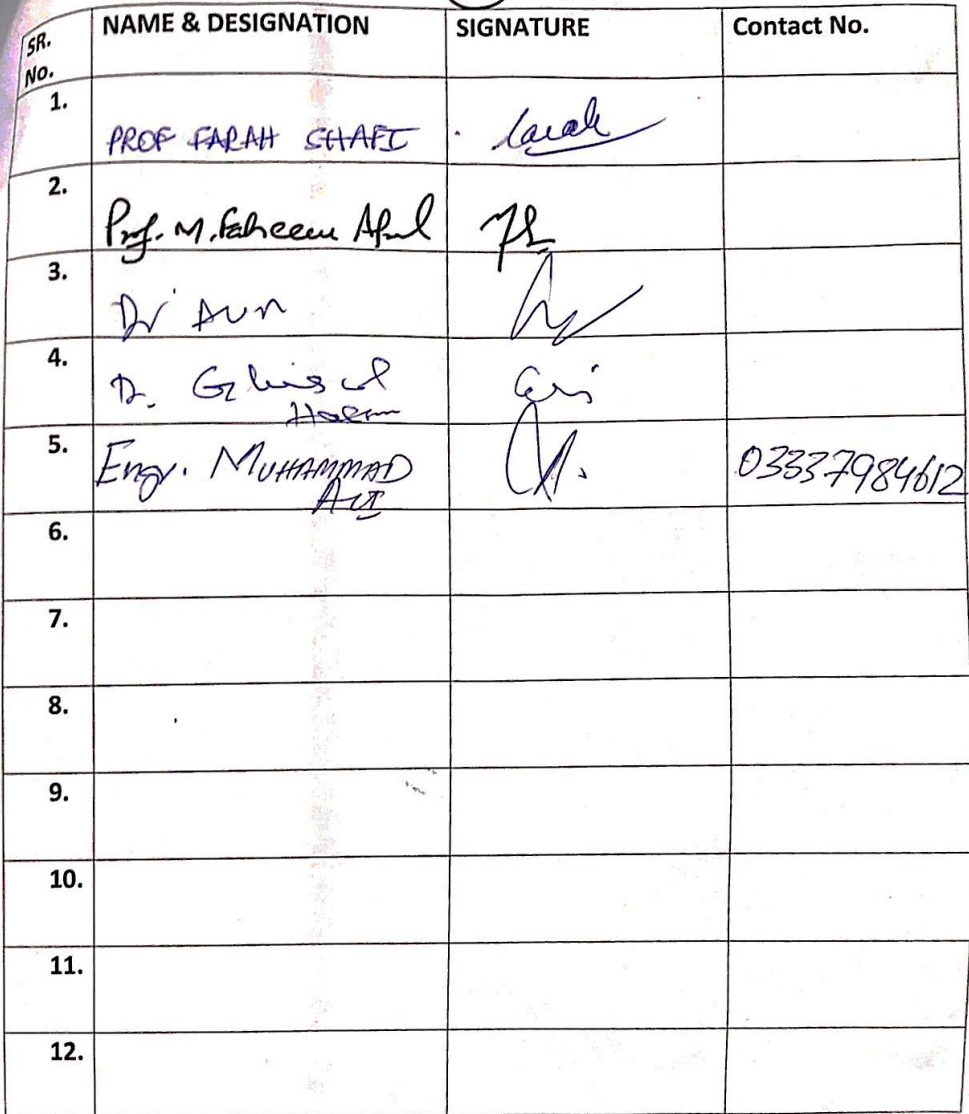 SR. No. NAME & DESIGNATION SIGNATURE Contact No.
1. PROF FARAH SHAFI
2. Prof. M. Faheem
3. Dr AUN
4. Dr.
5. Engr. MUHAMMAD 03337984612
ALI
6.
7.
8.
9.
10.
11.
12.